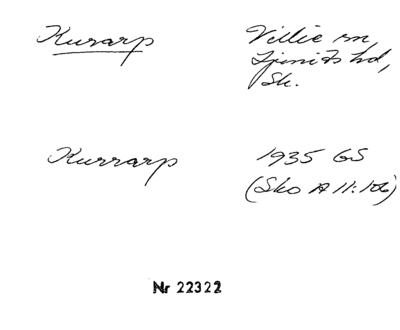 Kurarp
Villie sn,
Ljunits hd,
Sk.
Kurrarp
1935 GS
(Sko A 11:106)
Nr 22322